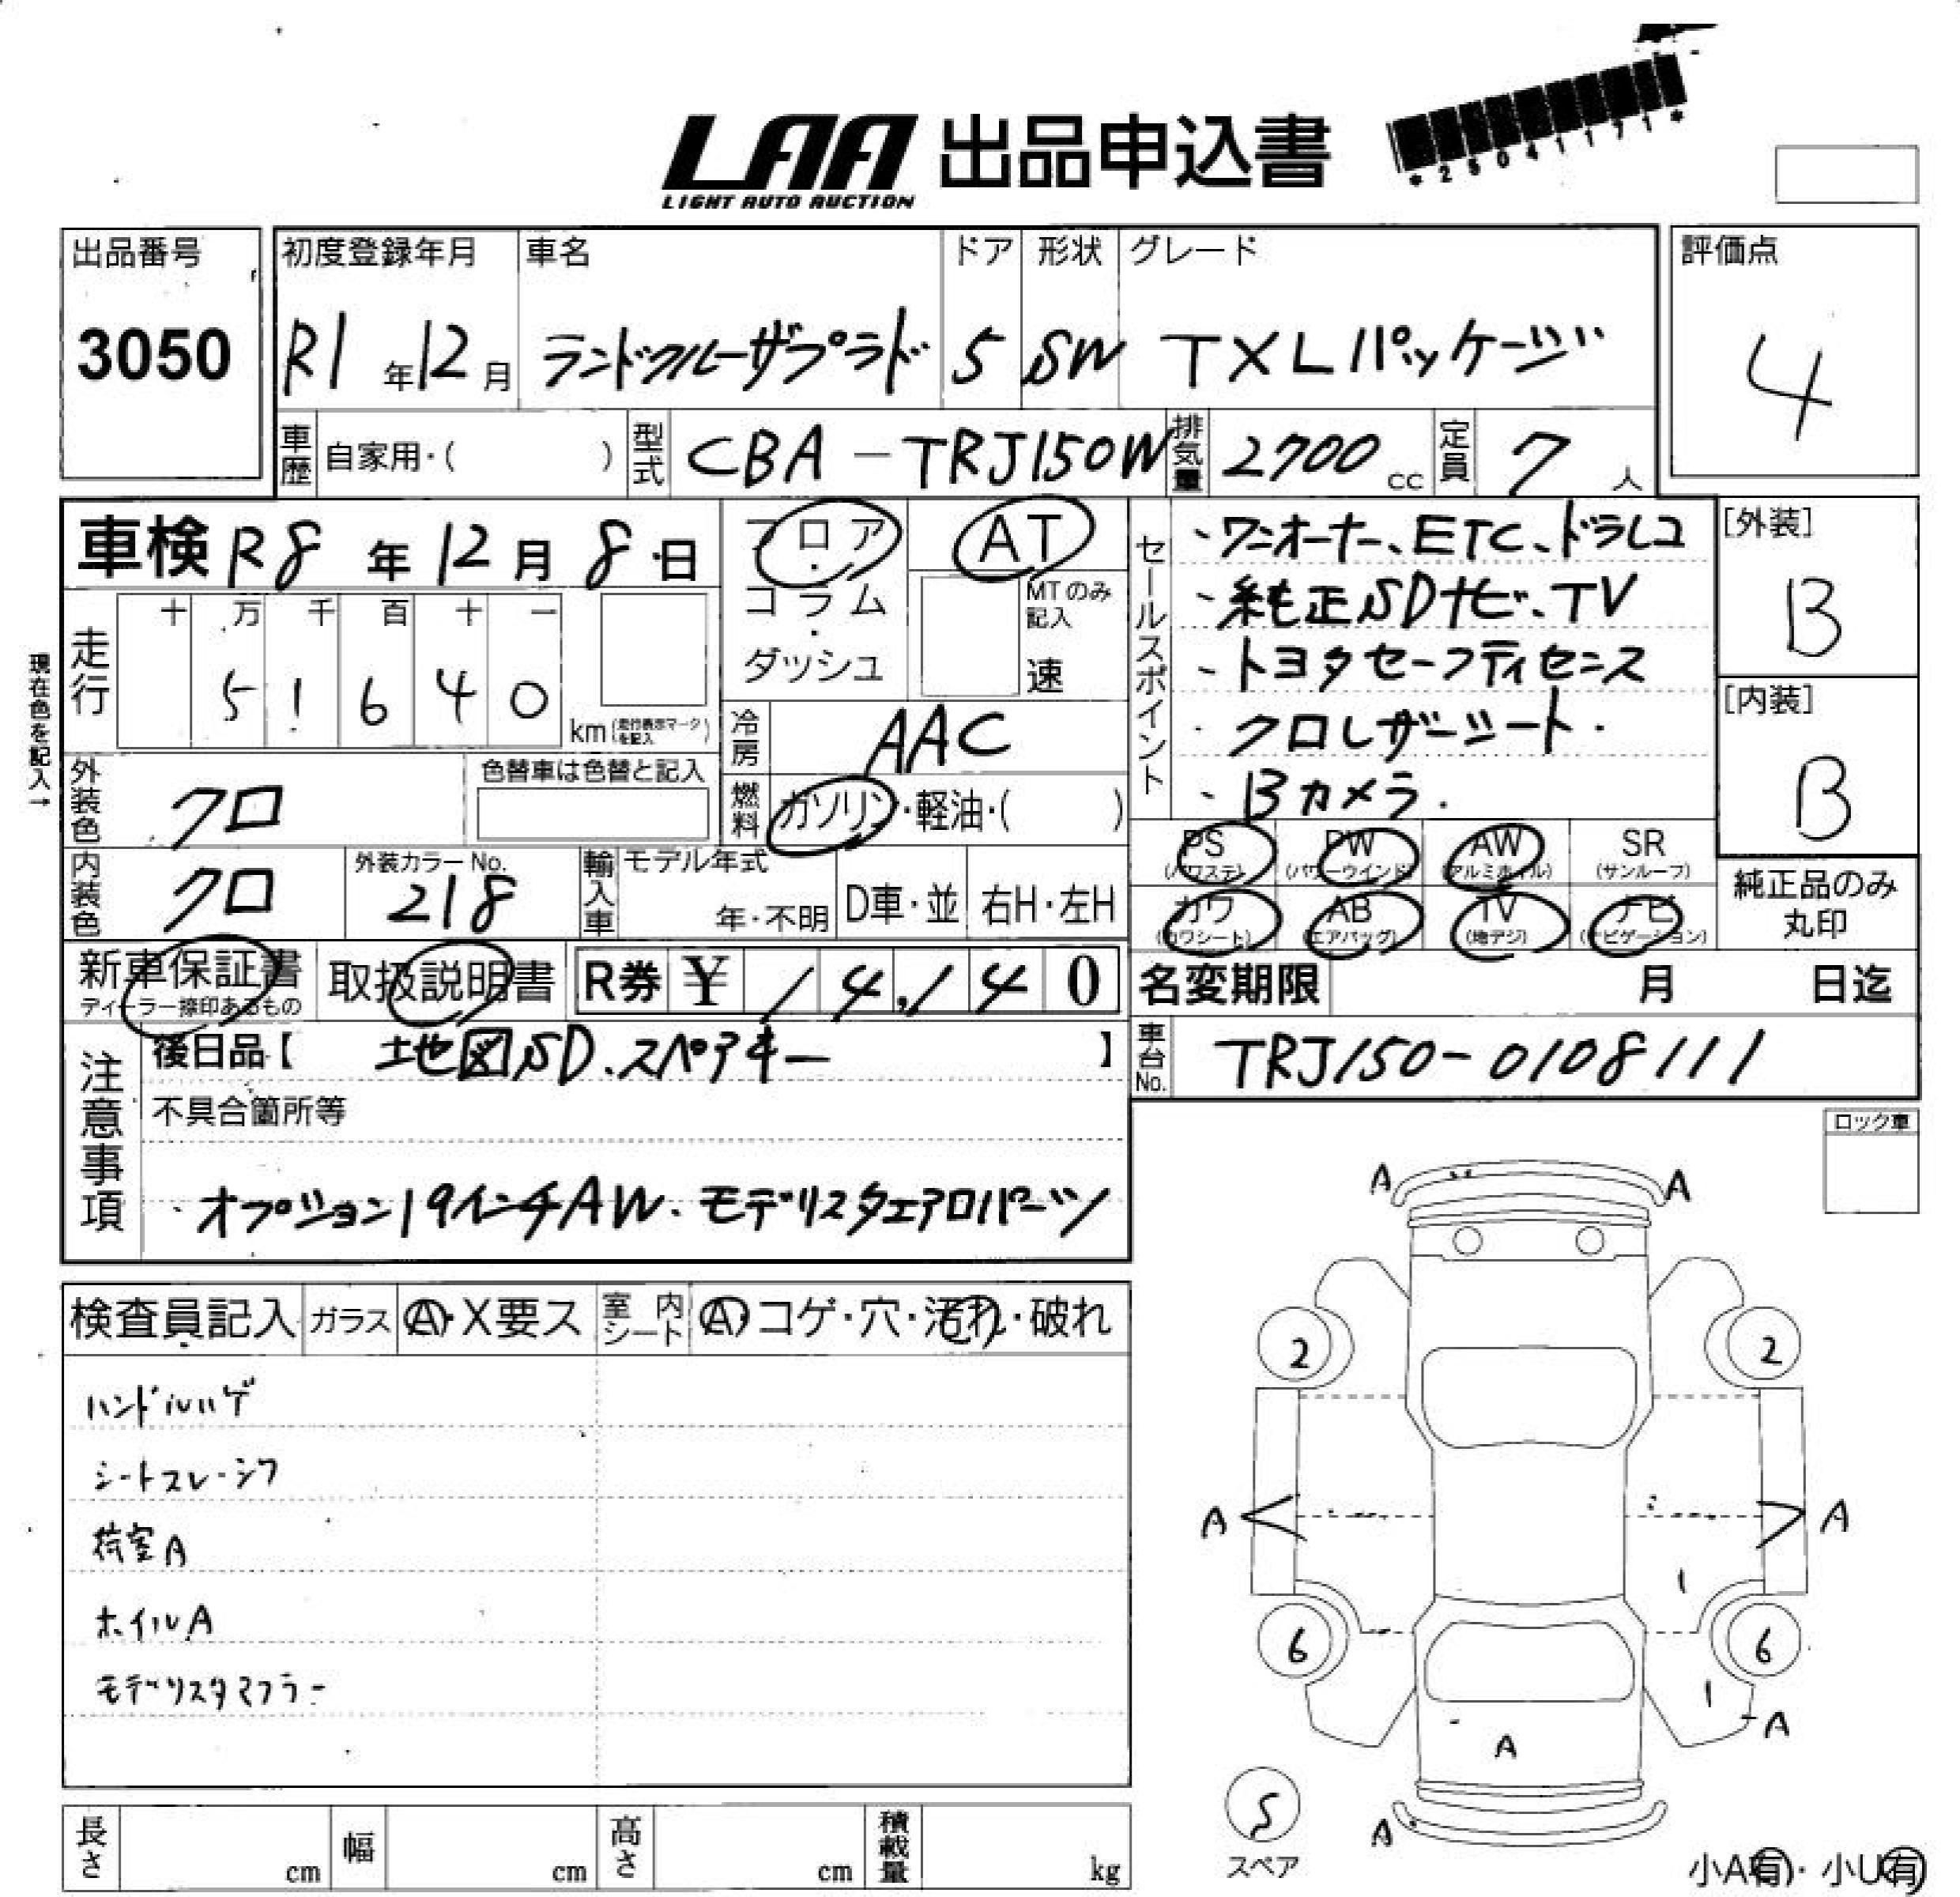 LAA 出品申込書
LIGHT AUTO AUCTION
*25041171*
出品番号
3050
初度登録年月
R1年12月
車名
ランドクルーザプラド
ドア
5
形状
SW
グレード
TXLパッケージ
評価点
4
車歴
自家用・( )
型式
CBA-TRJ150W
排気量
2700cc
定員
7人
車検 R8年12月8日
フロア・コラム・ダッシュ
AT
MTのみ記入
速
セールスポイント
・ワンオーナー、ETC、ドラレコ
・純正SDナビ、TV
・トヨタセーフティセンス
・クロレザーシート・
・Bカメラ.
[外装]
B
[内装]
B
現在色を記入→
走行
十万千百十一
51640
km(走行表示マークを記入)
冷房
AAC
外装色
クロ
色替車は色替と記入
燃料
ガソリン・軽油・( )
PS (パワステ)
PW (パワーウインド)
AW (アルミホイル)
SR (サンルーフ)
カワ (カワシート)
AB (エアバッグ)
TV (地デジ)
ナビ (ナビゲーション)
純正品のみ丸印
内装色
クロ
外装カラーNo.
218
輸入車
モデル年式
年・不明
D車・並
右H・左H
新車保証書
ディーラー捺印あるもの
取扱説明書
R券 ¥ 14,140
名変期限 月 日迄
注意事項
後日品【 地図SD、スペアキー 】
車台No.
TRJ150-0108111
不具合箇所等
・オプション19インチAW、モデリスタエアロパーツ
ロック車
検査員記入
ガラス
A・X要ス
室内シート
A・コゲ・穴・汚れ・破れ
ハンドルハゲ
シートスレ・シワ
荷室A
ホイルA
モデリスタマフラー
A A
2 2
A A
1
6 6
1
A
A
A
S
スペア
小A有・小U有
長さ cm
幅 cm
高さ cm
積載量 kg